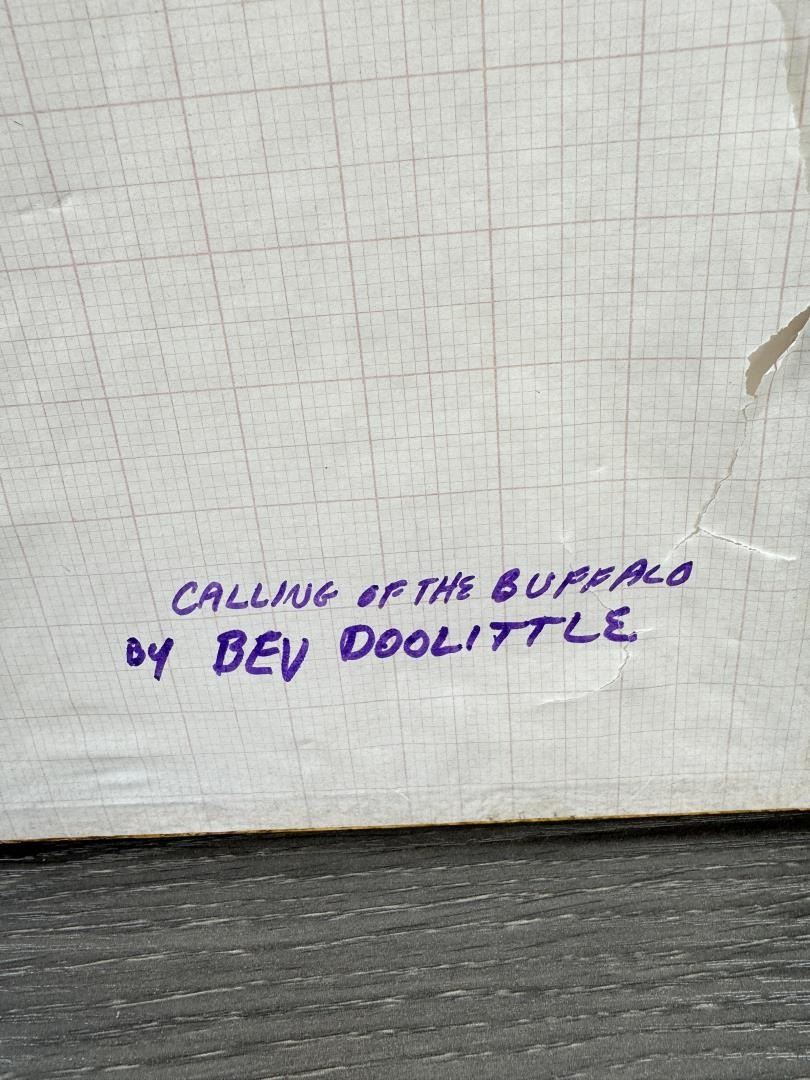 CALLING OF THE BUFFALO
BY BEV DOOLITTLE